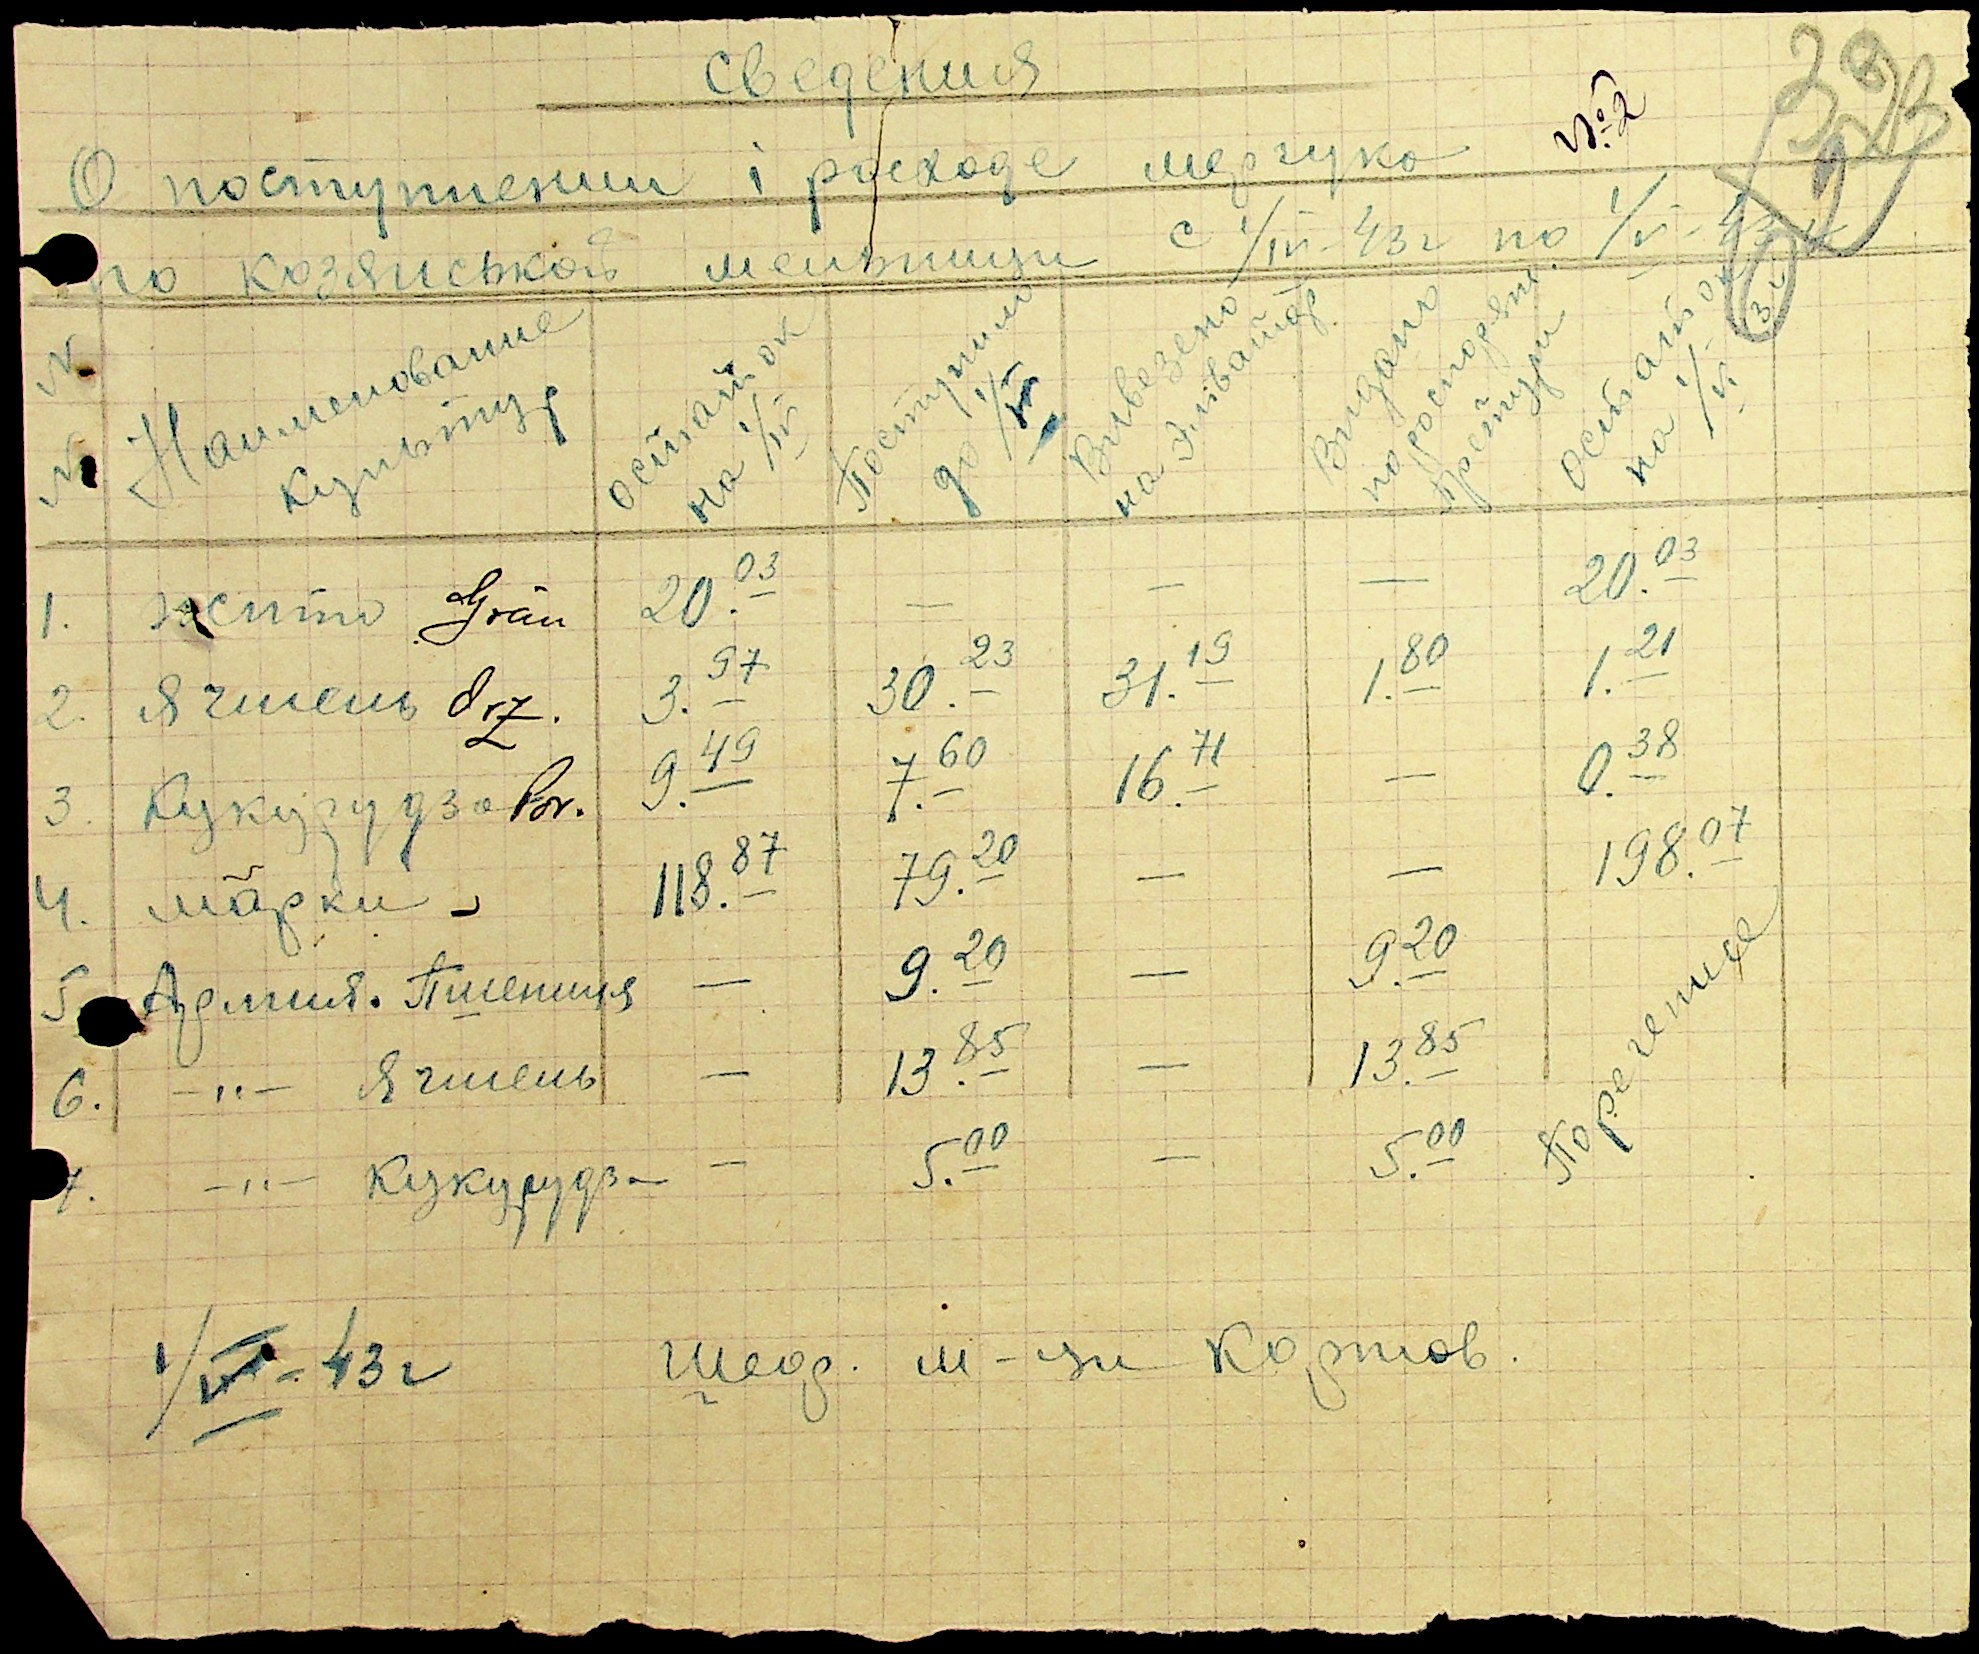 Сведения
О поступлении і расходе мерчука №2
по козянськой мельници с 1/IV-43г по 1/VI-43г
N N Наименование культур остаток на 1/IV Поступило до 1/VI Вивезено на Элеватор Видано по роспоряж. Претури Остаток на 1/VI 43г
1. жито Grâu 20.03 — — — 20.03
2. Ячмень Orz. 3.97 30.23 31.19 1.80 1.21
3. Кукурудза Por. 9.49 7.60 16.71 — 0.38
4. марки - 118.87 79.20 — — 198.07
5. Армия. Пшениця — 9.20 — 9.20
6. -"- Ячмень — 13.85 — 13.85
7. -"- Кукурудза — 5.00 — 5.00
1/VI-43г м-ци